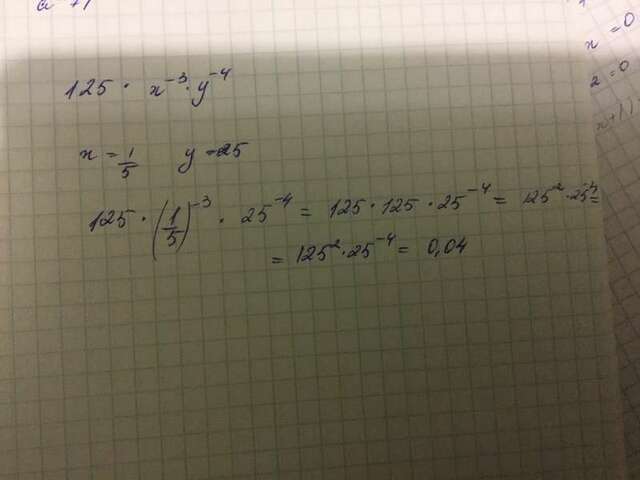 125 · x⁻³ · y⁻⁴
x = 1/5 y = 25
125 · (1/5)⁻³ · 25⁻⁴ = 125 · 125 · 25⁻⁴ = 125² · 25⁻⁴ =
= 125² · 25⁻⁴ = 0,04
x = 0
= 0